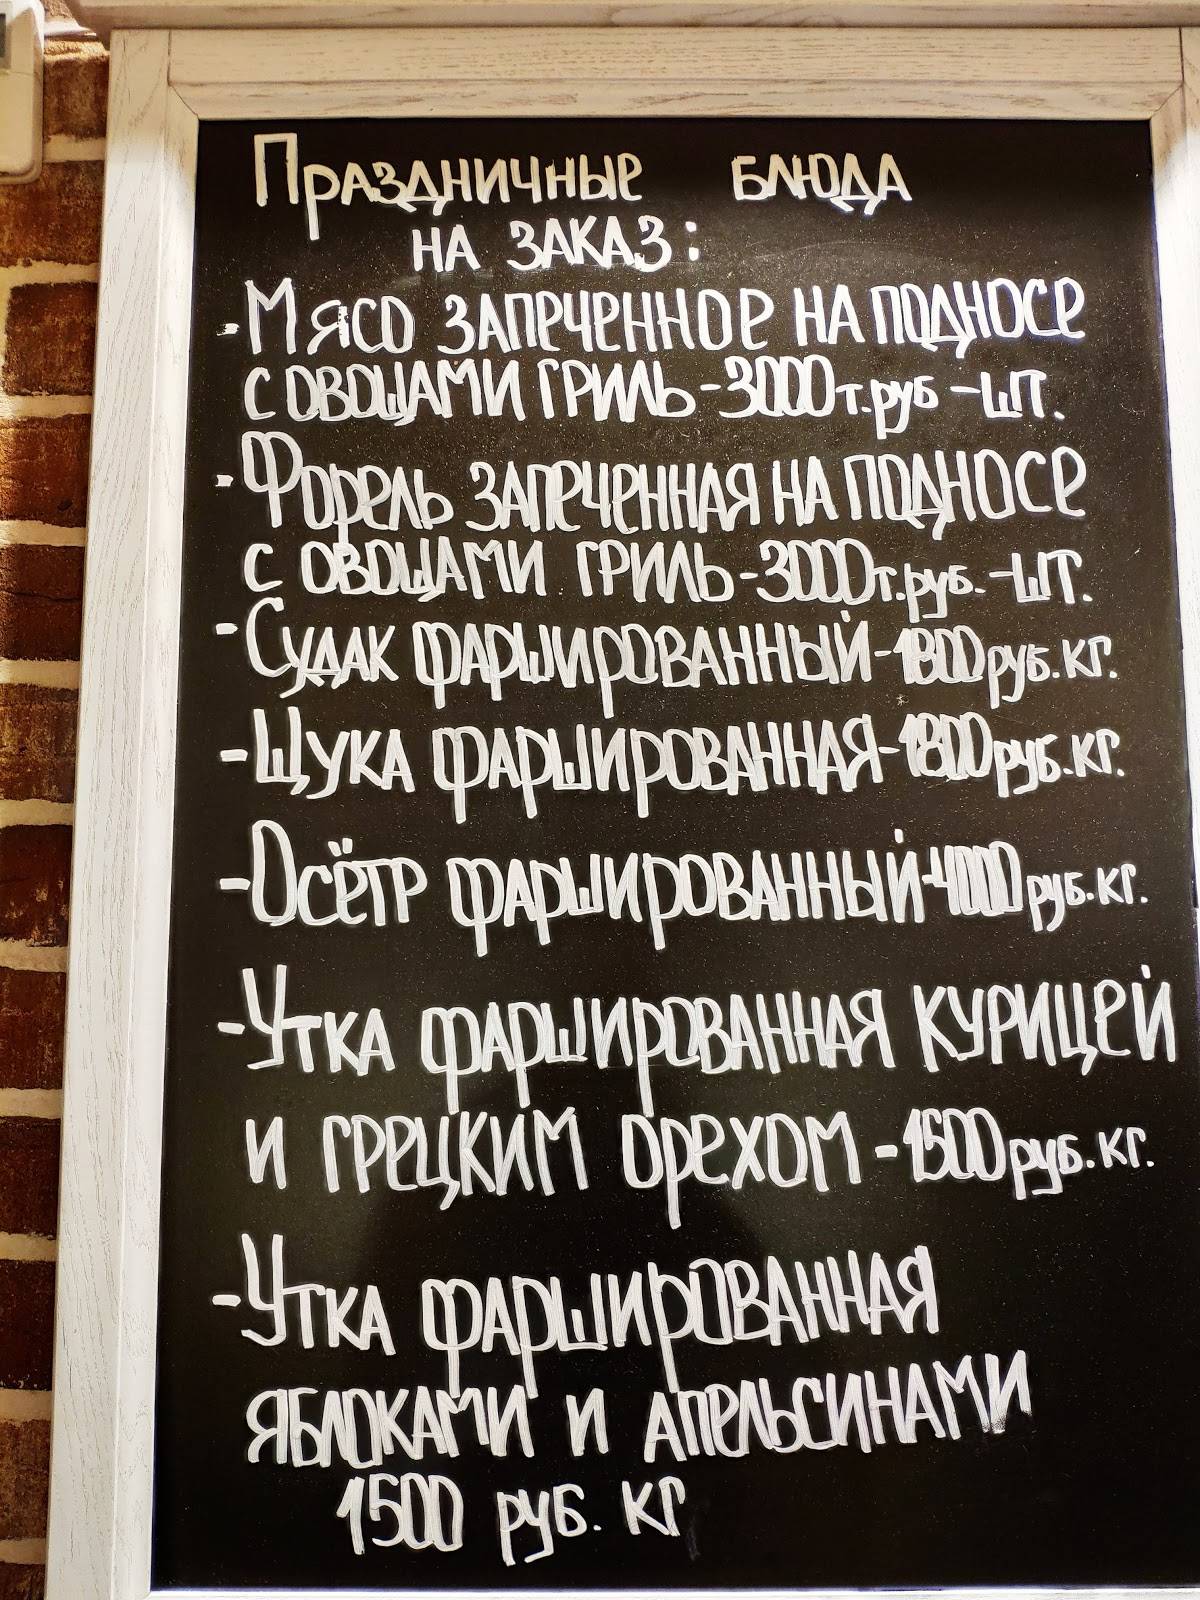 Праздничные блюда
на заказ:
- Мясо запеченное на подносе
с овощами гриль - 3000 т.руб - шт.
- Форель запеченная на подносе
с овощами гриль - 3000 т.руб. - шт.
- Судак фаршированный - 1800 руб. кг.
- Щука фаршированная - 1800 руб. кг.
- Осётр фаршированный - 4000 руб. кг.
- Утка фаршированная курицей
и грецким орехом - 1500 руб. кг.
- Утка фаршированная
яблоками и апельсинами
1500 руб. кг